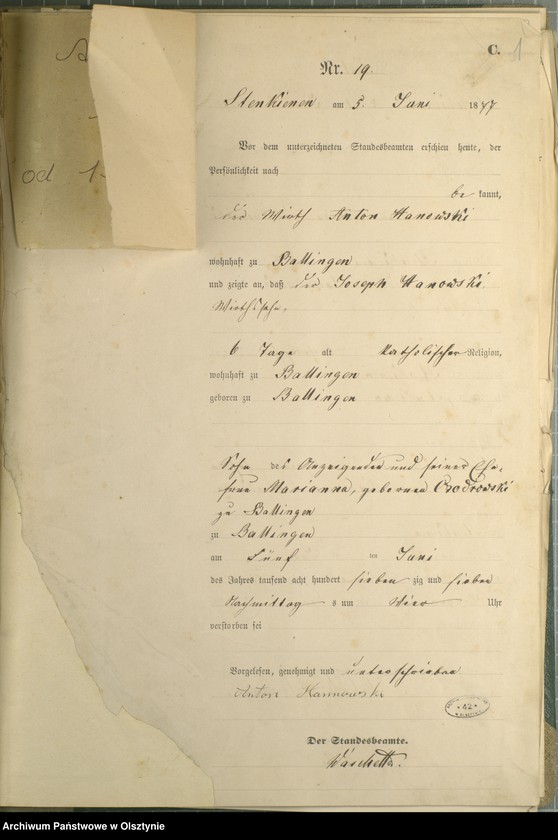 C. 1
Nr. 19.
Stenkienen am 5. Juni 1877
Vor dem unterzeichneten Standesbeamten erschien heute, der
Persönlichkeit nach
be kannt,
der Wirth Anton Hanowski
wohnhaft zu Ballingen
und zeigte an, daß der Joseph Hanowski
Wirthssohn,
6 Tage alt katholischer Religion,
wohnhaft zu Ballingen
geboren zu Ballingen
Sohn des Anzeigenden und seiner Ehe-
frau Marianna, geborenen
zu Ballingen
zu Ballingen
am Fünf ten Juni
des Jahres tausend acht hundert sieben zig und sieben
Nachmittag s um Vier Uhr
verstorben sei
Vorgelesen, genehmigt und unterschrieben
Anton Hannowski
42
Der Standesbeamte.
od 1
Archiwum Państwowe w Olsztynie